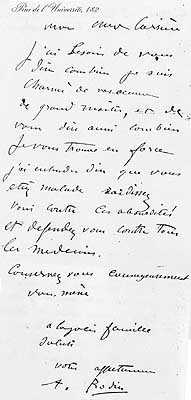 Rue de l'Université, 182
mon cher Carrière
J'ai besoin de vous
dire combien je suis
charmé de
de grand maître, et de
vous dire aussi combien
je vous trouve en force
j'ai entendu dire que vous
etiez malade raidissez
vous contre ces absurdités
et defendez vous contre tous
les medecins.
Conservez vous courageusement
vous même
a la jolie famille
saluts
votre affectueux
A. Rodin